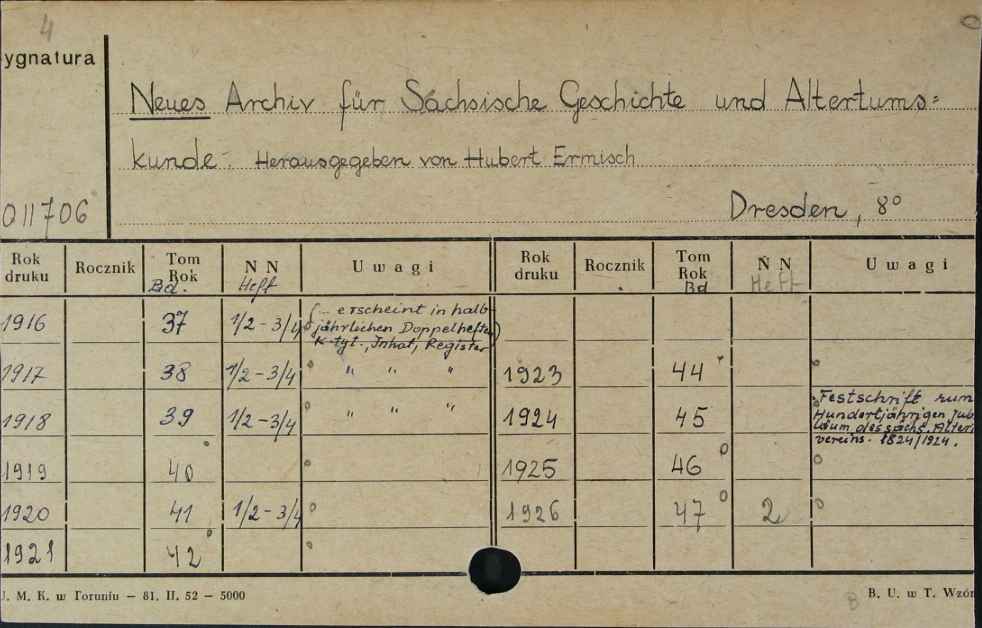 4
ygnatura
Neues Archiv für Sächsische Geschichte und Altertums=
kunde. Herausgegeben von Hubert Ermisch
011706
Dresden, 8°
Rok druku Rocznik Tom Rok Bd. N N Heft Uwagi Rok druku Rocznik Tom Rok Bd N N Heft Uwagi
1916 37 1/2-3/4 (... erscheint in halb-
jährlichen Doppelheften)
K-tyt., Inhat, Register
1917 38 1/2-3/4 " " " 1923 44
1918 39 1/2-3/4 " " " 1924 45 Festschrift zum
Hundertjährigen Jub
läum des sächs. Alter
vereins. 1824/1924.
1919 40 1925 46
1920 41 1/2-3/4 1926 47 2
1921 42
U. M. K. w Toruniu — 81. II. 52 — 5000
B
B. U. w T. Wzór